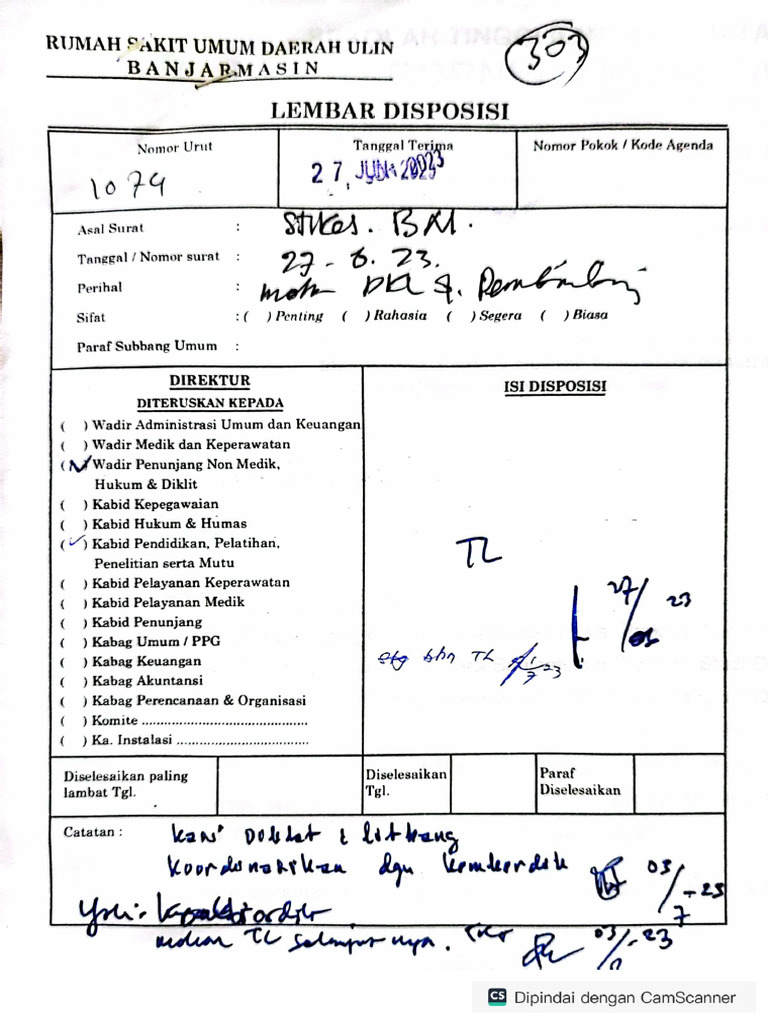 RUMAH SAKIT UMUM DAERAH ULIN
BANJARMASIN
303
LEMBAR DISPOSISI
Nomor Urut
1079
Tanggal Terima
27 JUN 2023
Nomor Pokok / Kode Agenda
Asal Surat : Stikes. BM.
Tanggal / Nomor surat : 27 - 6. 23.
Perihal :
Sifat : ( ) Penting ( ) Rahasia ( ) Segera ( ) Biasa
Paraf Subbang Umum :
DIREKTUR
DITERUSKAN KEPADA
( ) Wadir Administrasi Umum dan Keuangan
( ) Wadir Medik dan Keperawatan
(✓) Wadir Penunjang Non Medik,
Hukum & Diklit
( ) Kabid Kepegawaian
( ) Kabid Hukum & Humas
(✓) Kabid Pendidikan, Pelatihan,
Penelitian serta Mutu
( ) Kabid Pelayanan Keperawatan
( ) Kabid Pelayanan Medik
( ) Kabid Penunjang
( ) Kabag Umum / PPG
( ) Kabag Keuangan
( ) Kabag Akuntansi
( ) Kabag Perencanaan & Organisasi
( ) Komite ................................................
( ) Ka. Instalasi ......................................
ISI DISPOSISI
TL
27/06 23
TL 1/7 23
Diselesaikan paling
lambat Tgl.
Diselesaikan
Tgl.
Paraf
Diselesaikan
Catatan : Kasi Diklat & litbang
koordinasikan dgn
03/7 - 23
Yth:
mohon TL selanjutnya.
03/ - 23
CS Dipindai dengan CamScanner